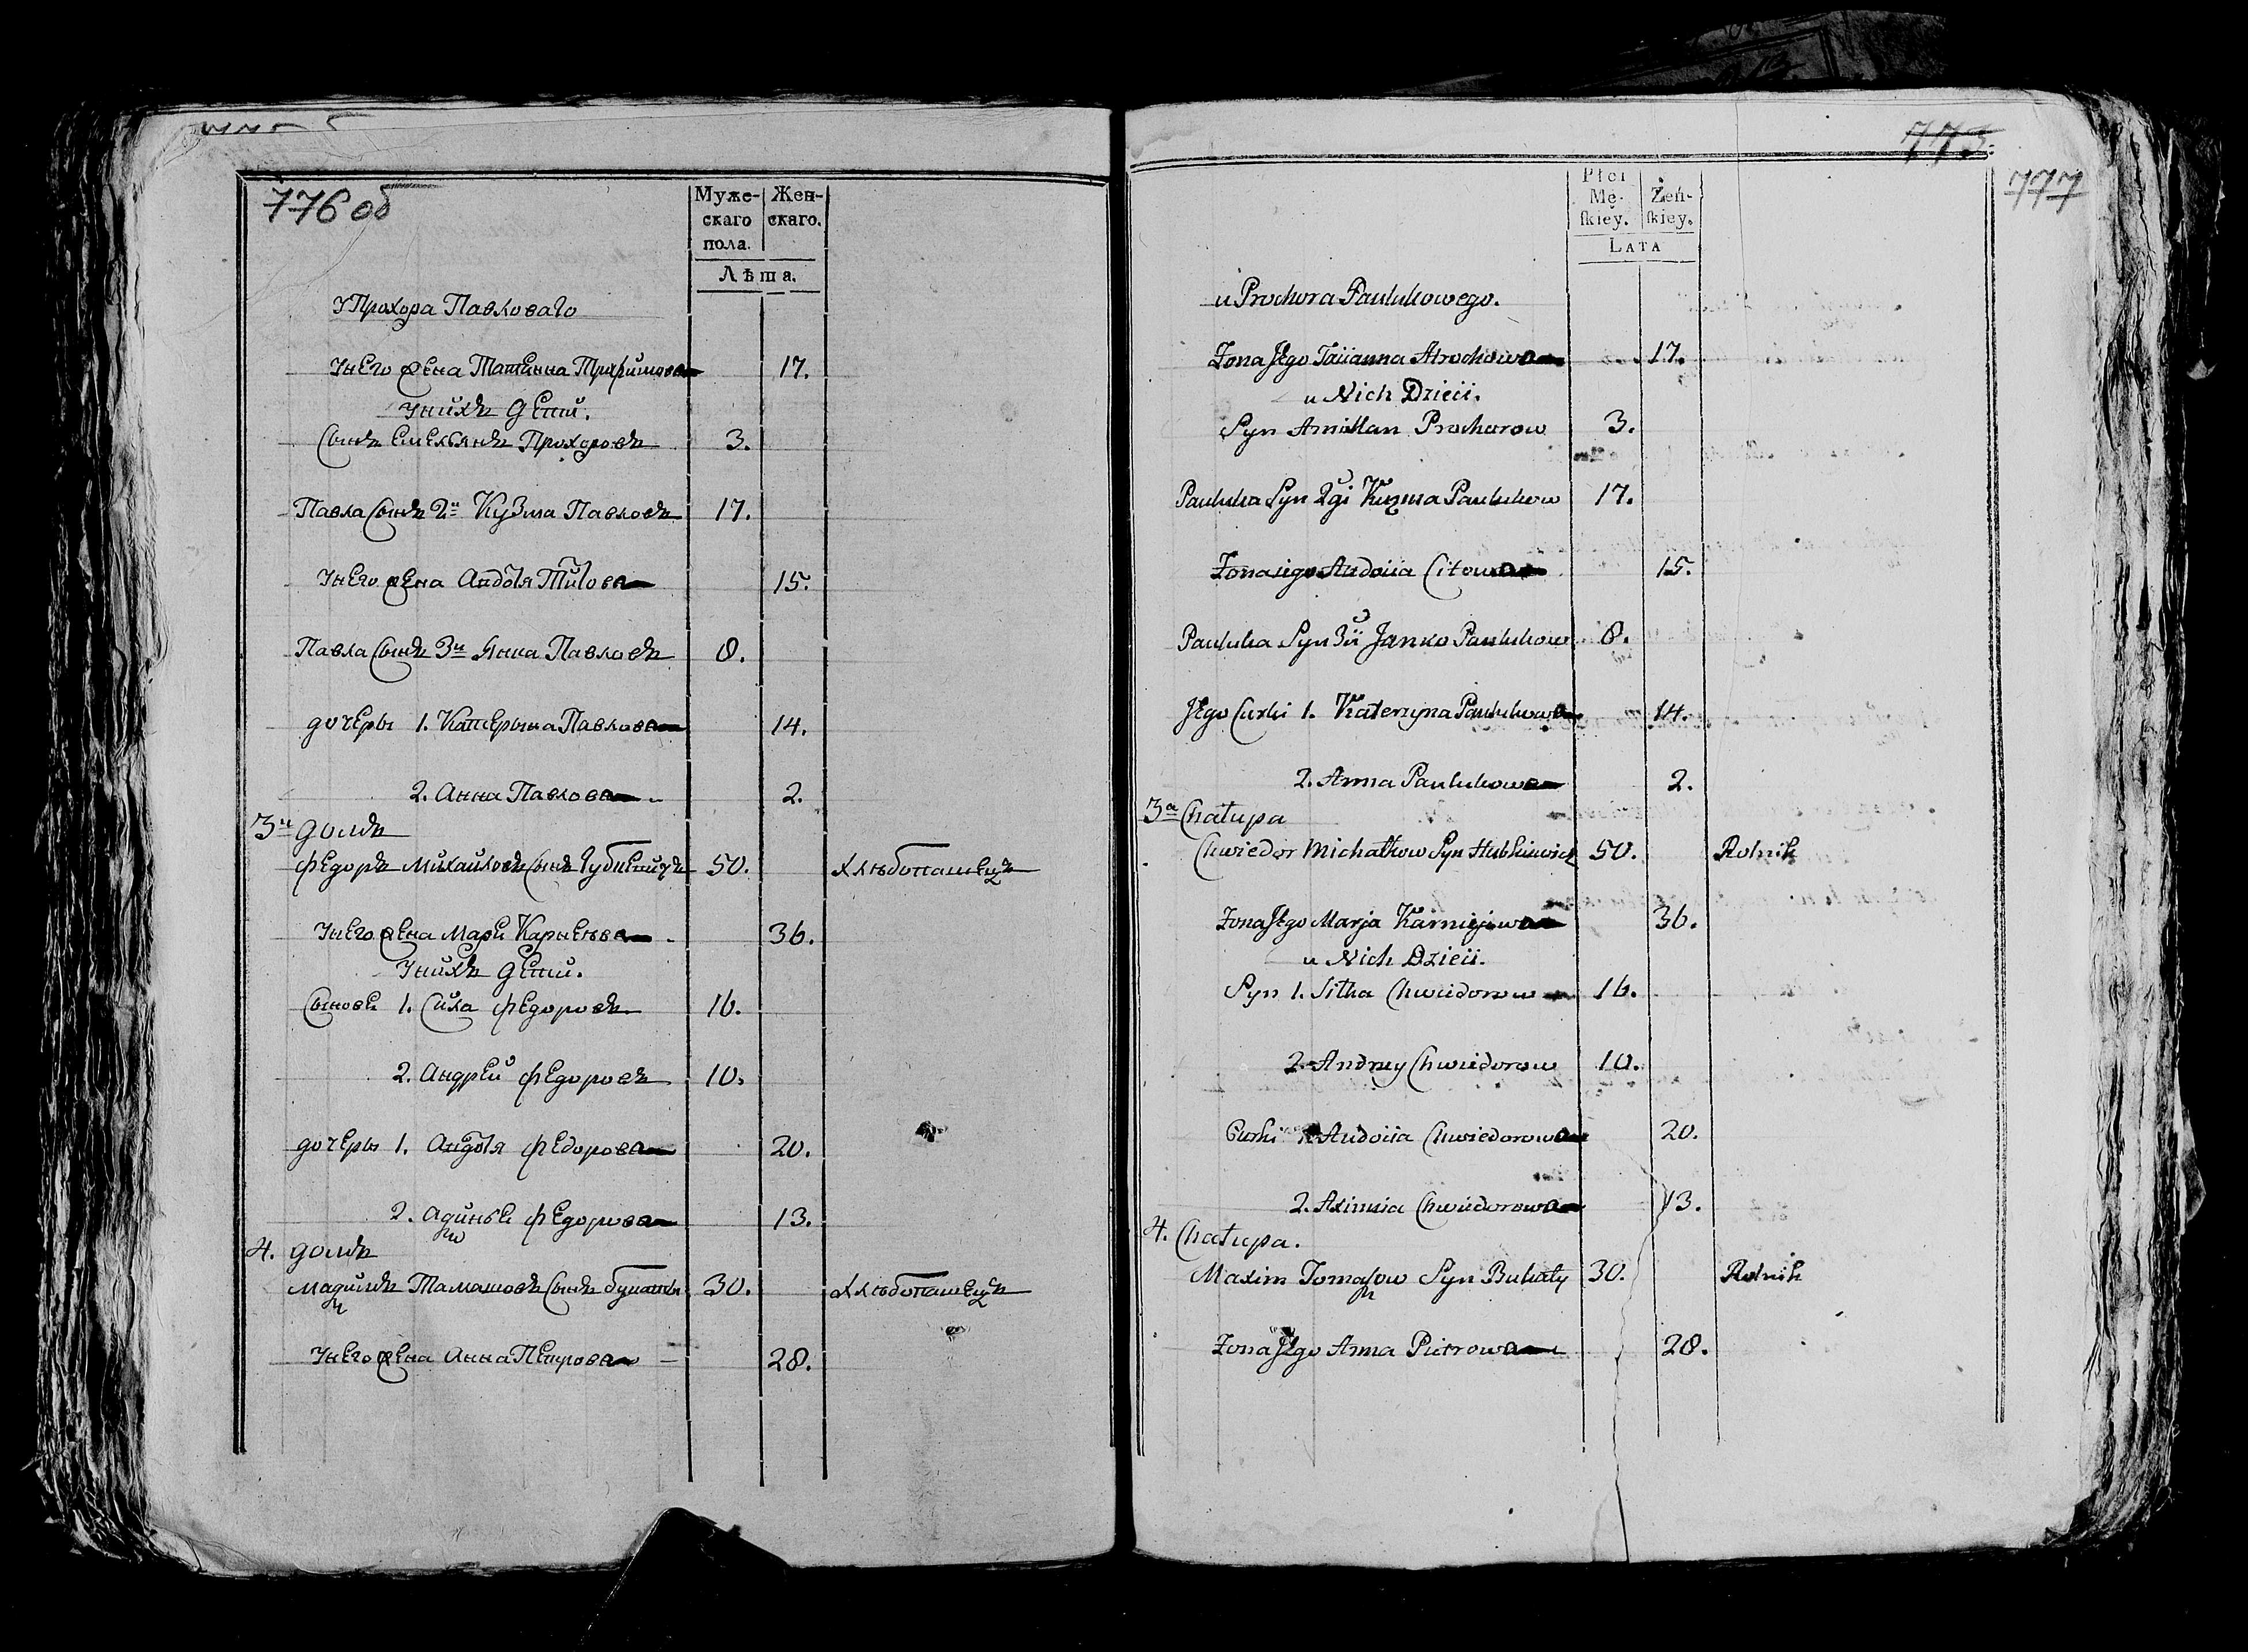 776 об
Муже-
скаго
пола.
Жен-
скаго.
Лѣта.
У Прохора Павловаго
У него жена Татянна Трофимова 17.
У нихъ дети.
Сынъ Емельянъ Прохоровъ 3.
Павла Сынъ 2й Кузма Павловъ 17.
У него жена Авдотя Титова 15.
Павла Сынъ 3й Янка Павловъ 8.
дочеры 1. Катерына Павлова 14.
2. Анна Павлова 2.
3й домъ
Федоръ Михайловъ Сынъ 50. Хлѣбопашецъ
У него жена Мари Карнеева 36.
У нихъ дети.
Сынове 1. Сила Федоровъ 16.
2. Андрей Федоровъ 10.
дочеры 1. Авдотя Федорова 20.
2. Федорова 13.
4. домъ
Тамашовъ Сынъ 30. Хлѣбопашецъ
У него жена Анна Петрова 28.
773.
777
Płci
Mę-
skiey.
Żeń-
skiey.
LATA
u Prochora Paulukowego.
Zona Jego Taiianna Atrochowa 17.
u Nich Dzieii.
Syn Amillan Prochorow 3.
Pauluka Syn 2gi Kuzma Paulukow 17.
Zona iego Audoiia Citowa 15.
Pauluka Syn 3ii Janko Paulukow 8.
Jego Curki 1. Katerzyna Paulukowa 14.
2. Anna Paulukowa 2.
3a Chałupa
Chwiedor Michałkow Syn Hubkiewicz 50. Rolnik
Zona Jego Marja Karniejewa 36.
u Nich Dzieii.
Syn 1. Siłka Chwiedorow 16.
2. Andrzey Chwiedorow 10.
Curki 1. Audoiia Chwiedorowa 20.
2. Aximia Chwiedorowa 13.
4. Chałupa.
Maxim Tomaszow Syn Buhaty 30. Rolnik
Zona Jego Anna Piotrowa 28.